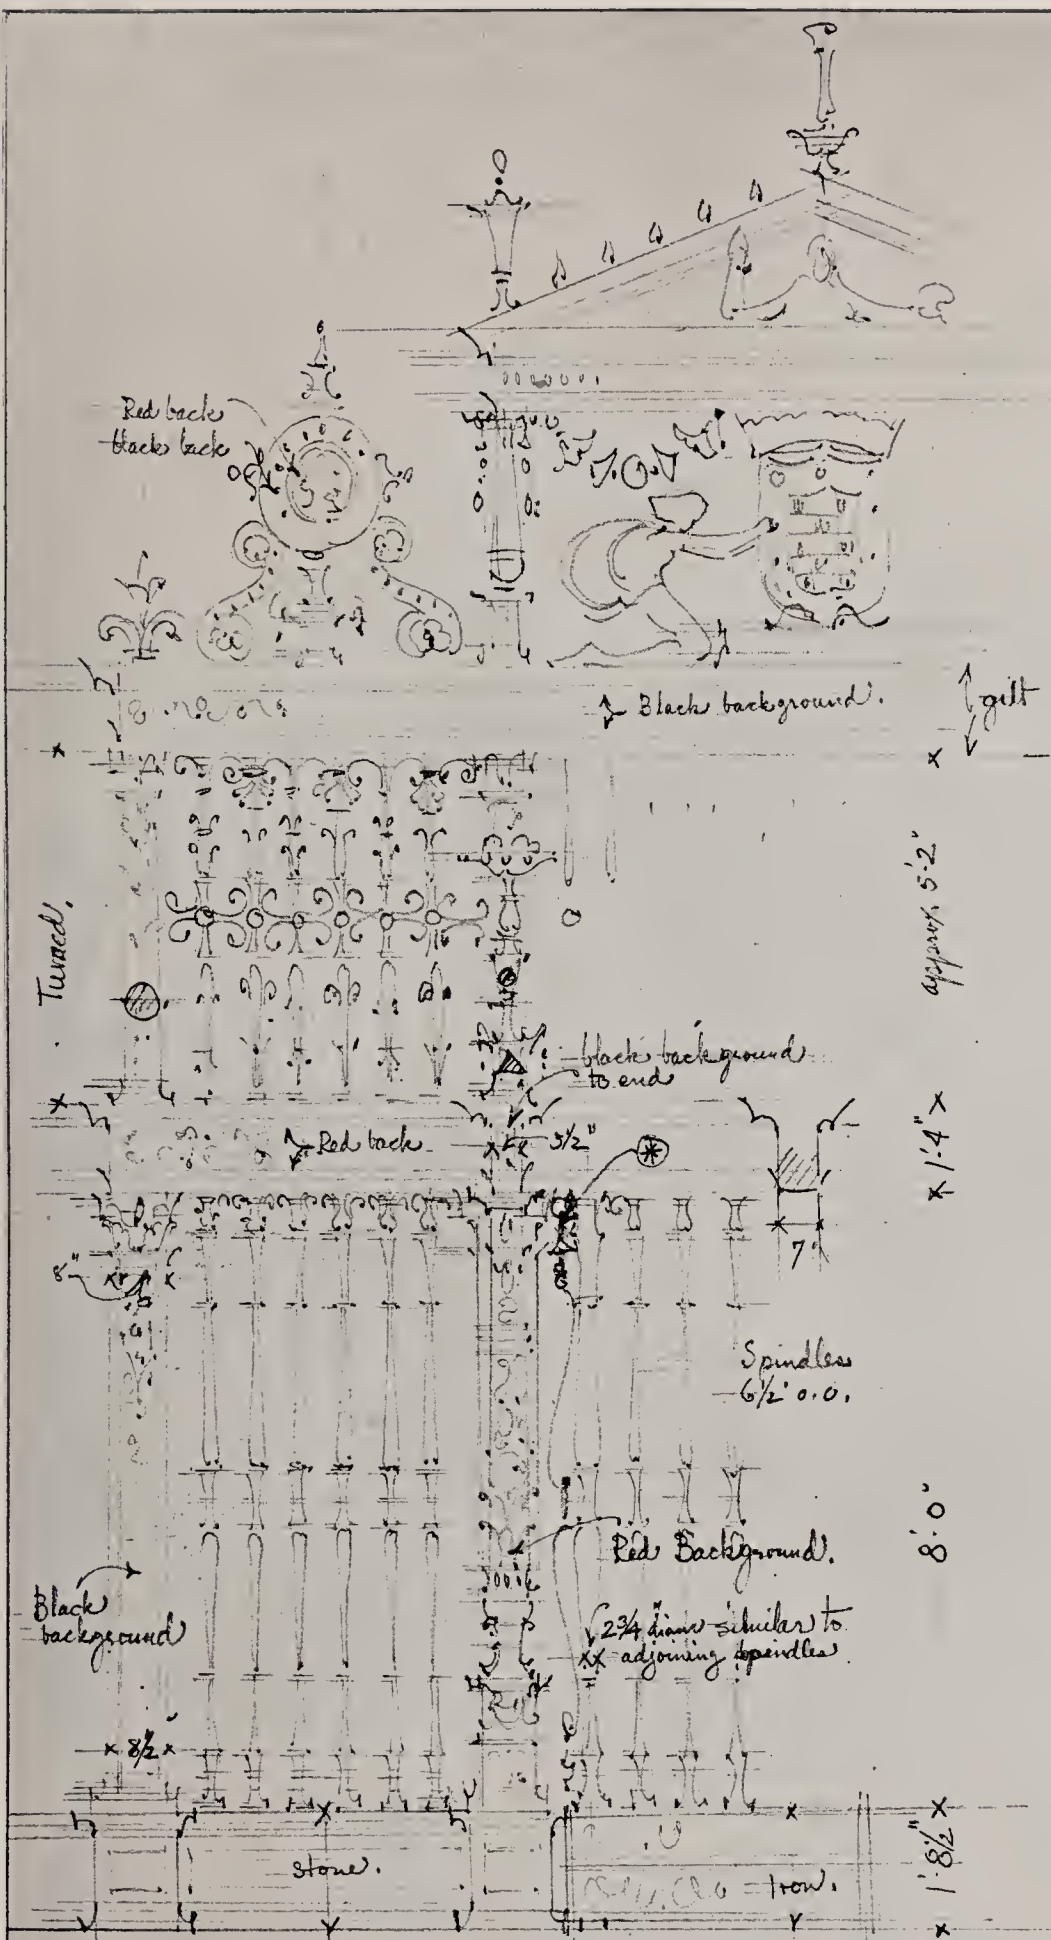 Red back
black back
↕ Black background.
gilt
Turned.
approx. 5'-2"
black background
to end
Red back
3½"
1'-4"
7"
8"
Spindles
6½" o.o.
8'-0"
Red Background.
Black
background
2¾" diam similar to
adjoining spindles
8½"
stone.
Iron.
1'-8½"